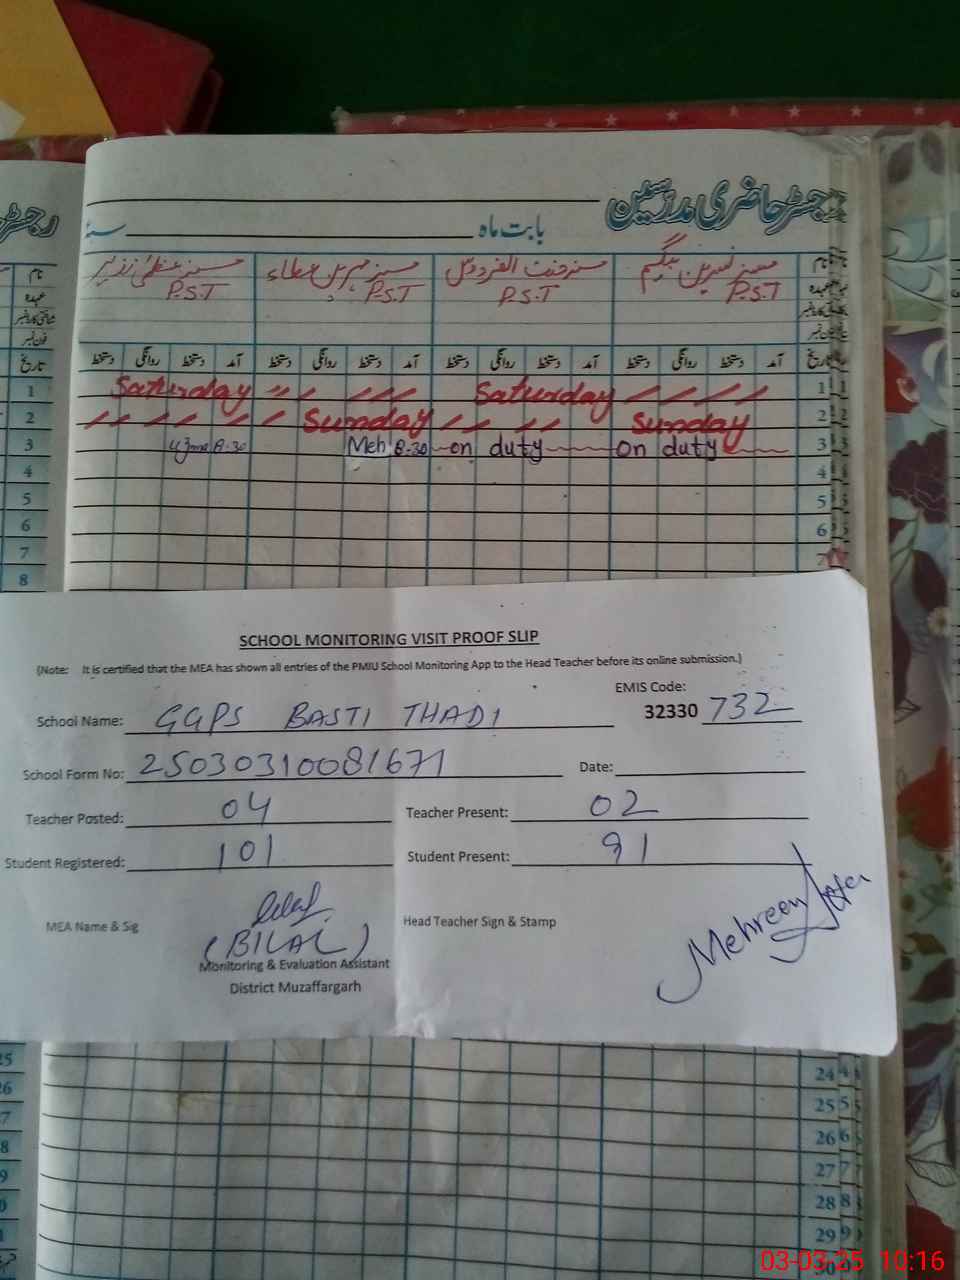 رجسٹر حاضری مدرسین
بابت ماہ سنہ
مسز نسرین بیگم مسز جنت الفردوس مسز مہرین عطاء مسز عظمیٰ نذیر نام
P.S.T P.S.T P.S.T P.S.T عہدہ
تاریخ آمد دستخط روانگی دستخط آمد دستخط روانگی دستخط آمد دستخط روانگی دستخط آمد دستخط روانگی دستخط
1 Saturday Saturday 1
2 Sunday Sunday 2
3 Uzma 8-30 Meh 8-30 on duty On duty 3
4 4
5 5
6 6
7 7
8
SCHOOL MONITORING VISIT PROOF SLIP
(Note: It is certified that the MEA has shown all entries of the PMIU School Monitoring App to the Head Teacher before its online submission.)
EMIS Code:
School Name: GGPS BASTI THADI 32330 732
School Form No: 25030310081671 Date:
Teacher Posted: 04 Teacher Present: 02
Student Registered: 101 Student Present: 91
MEA Name & Sig Head Teacher Sign & Stamp Mehreen Ata
(BILAL)
Monitoring & Evaluation Assistant
District Muzaffargarh
25 24
26 25
26
27
28
29
30
03-03-25 10:16